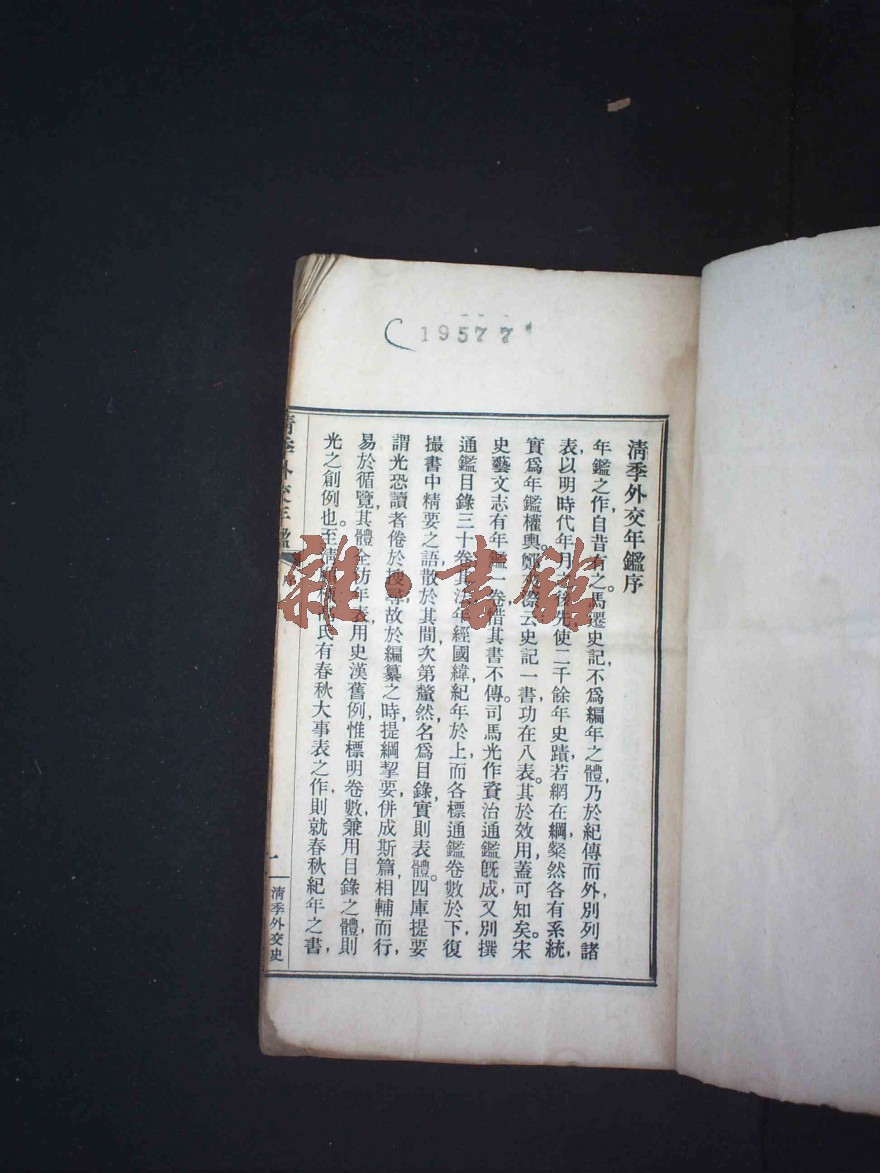 19577
清季外交年鑑序
年鑑之作，自昔有之。馬遷史記，不爲編年之體，乃於紀傳而外，別列諸
表，以明時代年月後先，使二千餘年史蹟，若網在綱，粲然各有系統，
實爲年鑑權輿。鄭樵云，史記一書，功在八表。其於效用，蓋可知矣。宋
史藝文志有年鑑一卷，惜其書不傳。司馬光作資治通鑑，旣成，又別撰
通鑑目錄三十卷，其法年經國緯，紀年於上，而各標通鑑卷數於下，復
撮書中精要之語，散於其間，次第釐然，名爲目錄，實則表體。四庫提要
謂光恐讀者倦於搜尋，故於編纂之時，提綱挈要，併成斯篇，相輔而行，
易於循覽，其體全仿年表，用史漢舊例，惟標明卷數，兼用目錄之體，則
光之創例也。至清 氏有春秋大事表之作，則就春秋紀年之書，
清季外交年鑑
序
一
清季外交史
雜·書館